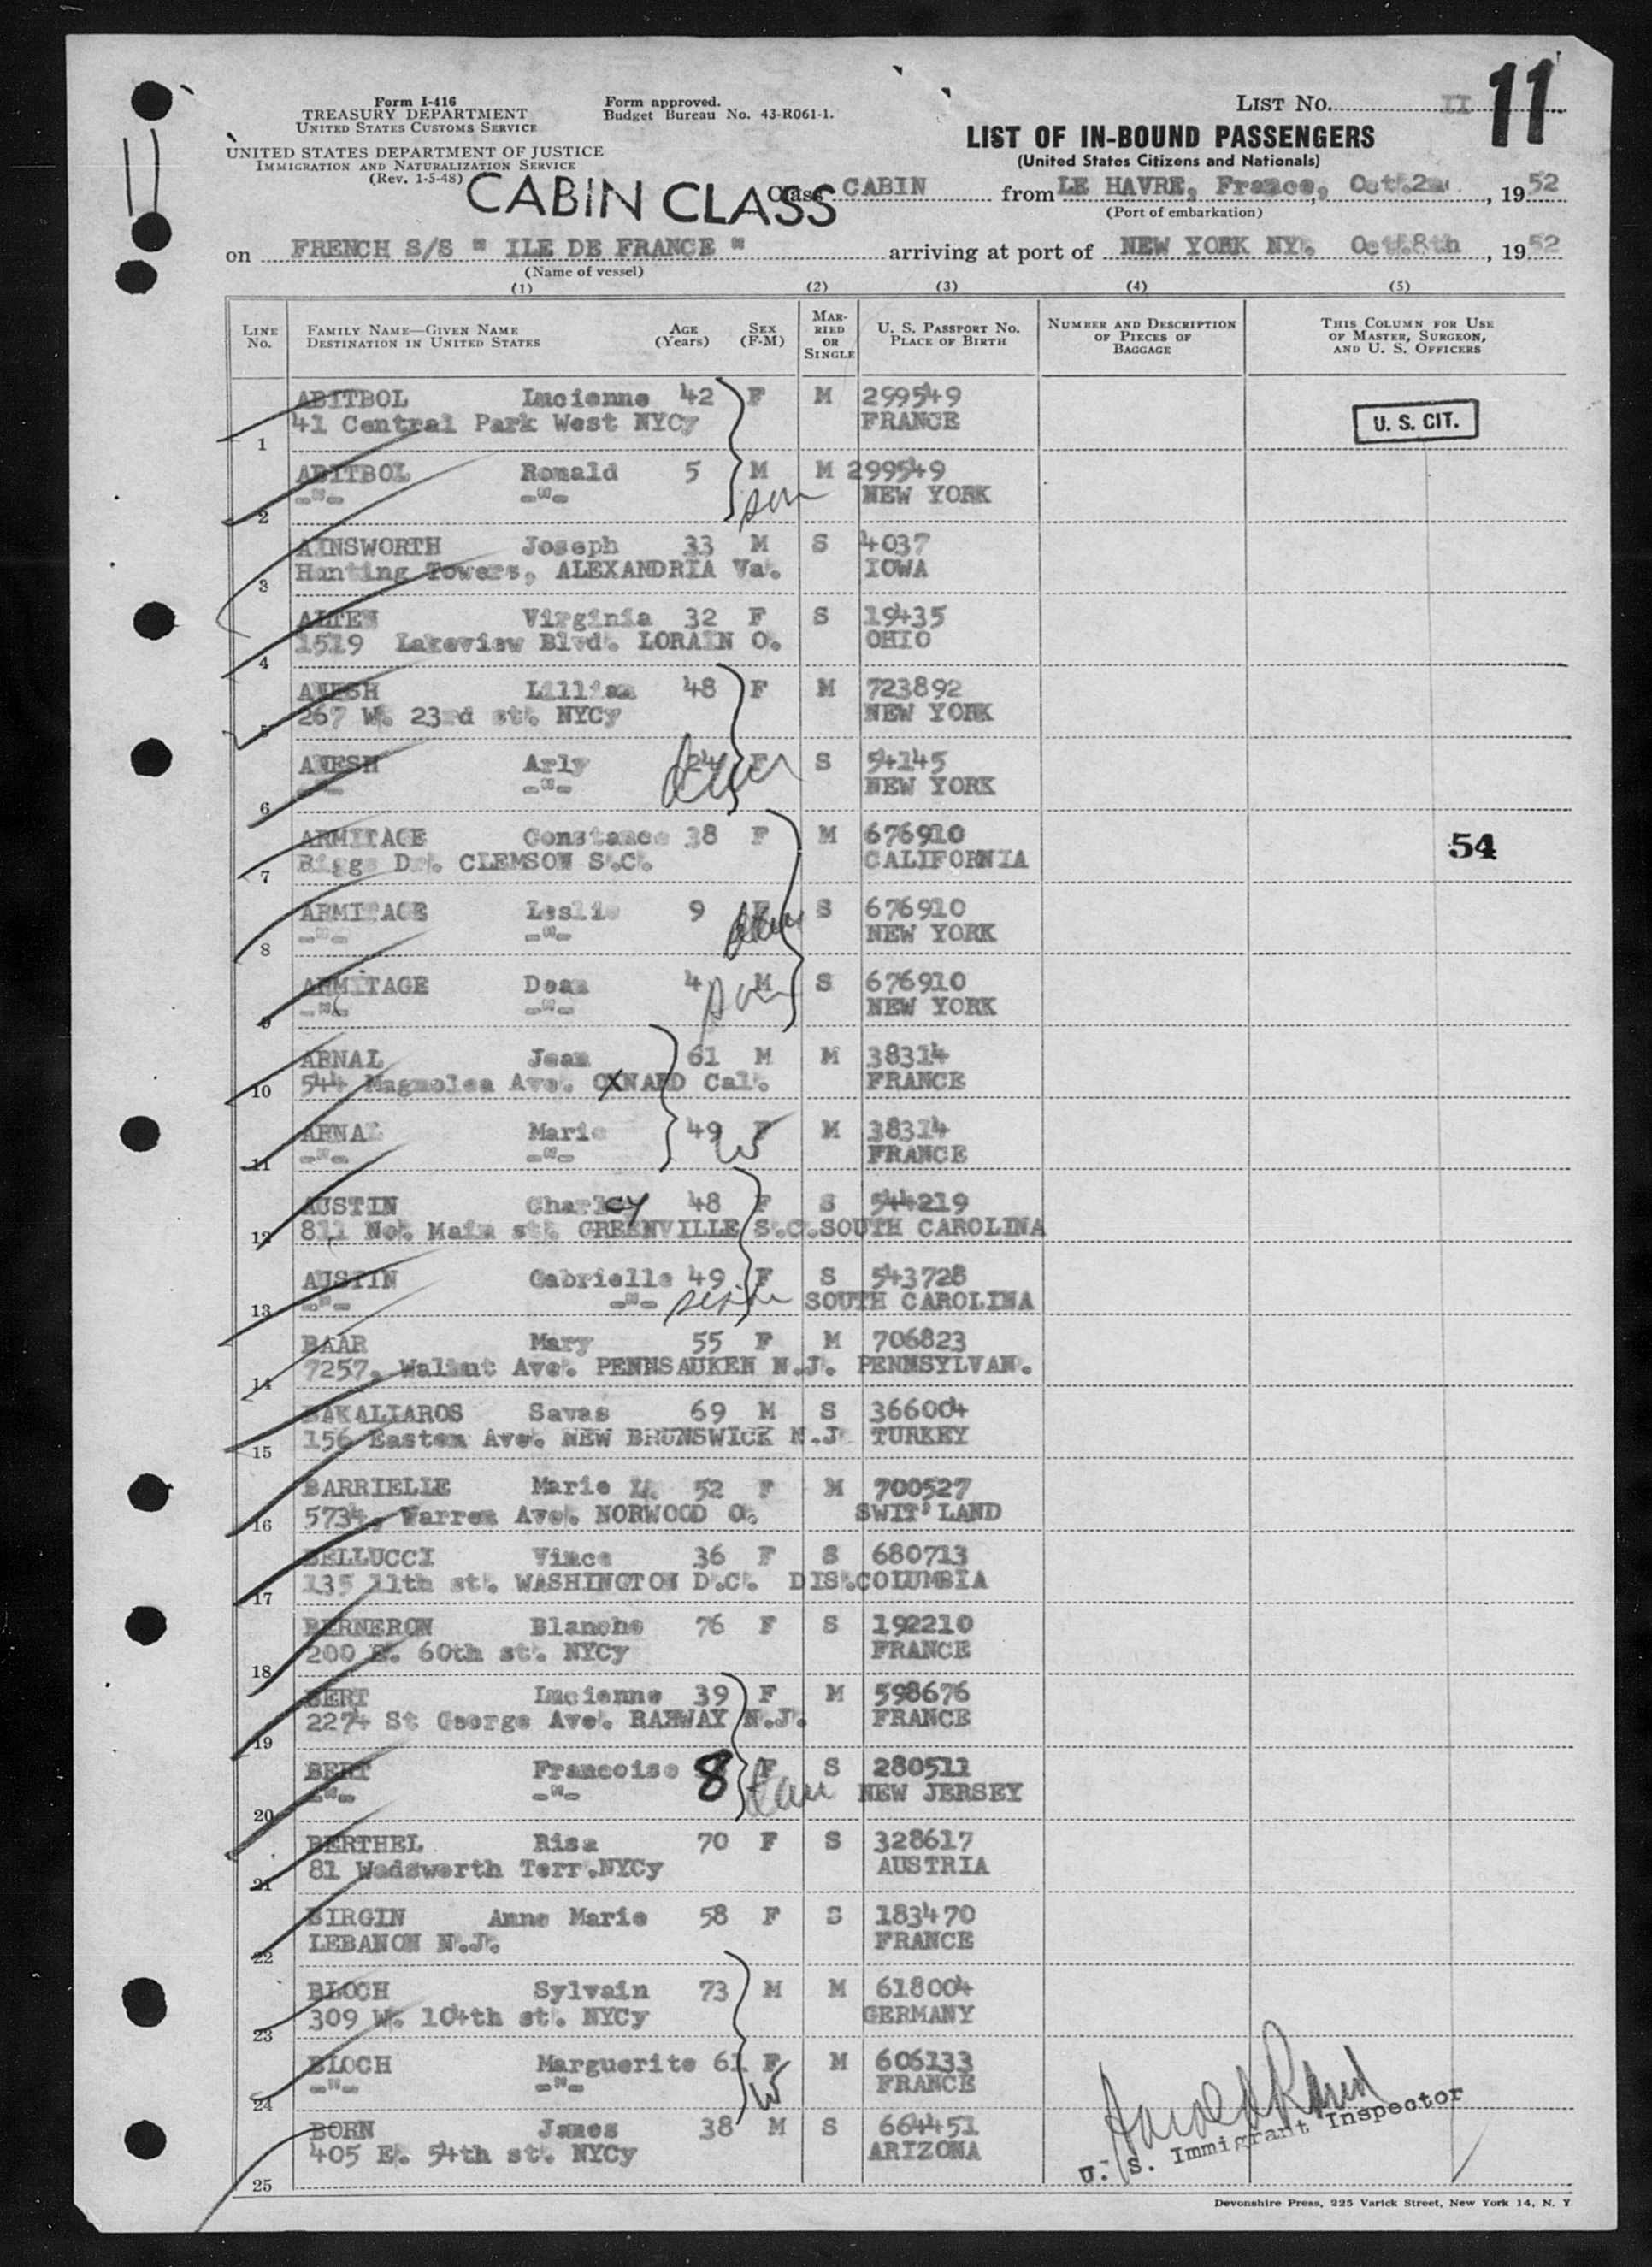 Form I-416
TREASURY DEPARTMENT
UNITED STATES CUSTOMS SERVICE
UNITED STATES DEPARTMENT OF JUSTICE
IMMIGRATION AND NATURALIZATION SERVICE
(Rev. 1-5-48)
Form approved.
Budget Bureau No. 43-R061-1.
LIST No. II 11
LIST OF IN-BOUND PASSENGERS
(United States Citizens and Nationals)
CABIN CLASS
Class CABIN from LE HAVRE, France, Oct.2nd. , 1952
(Port of embarkation)
on FRENCH S/S " ILE DE FRANCE " arriving at port of NEW YORK NY. Oct.8th , 1952
(Name of vessel)
(1) (2) (3) (4) (5)
LINE No. FAMILY NAME—GIVEN NAME DESTINATION IN UNITED STATES AGE (Years) SEX (F-M) MARRIED OR SINGLE U. S. PASSPORT No. PLACE OF BIRTH NUMBER AND DESCRIPTION OF PIECES OF BAGGAGE THIS COLUMN FOR USE OF MASTER, SURGEON, AND U. S. OFFICERS
ABITBOL Lucienne 42 F M 299549
1 41 Central Park West NYCy FRANCE U. S. CIT.
ABITBOL Ronald 5 M M 299549
2 -"- -"- son NEW YORK
AINSWORTH Joseph 33 M S 4037
3 Hunting Towers, ALEXANDRIA Va. IOWA
ALTEN Virginia 32 F S 19435
4 1519 Lakeview Blvd. LORAIN O. OHIO
ANESH Lillian 48 F M 723892
5 267 W. 23rd st. NYCy NEW YORK
ANESH Arly 24 F S 54145
6 -"- -"- NEW YORK
ARMITAGE Constance 38 F M 676910
7 Riggs Dr. CLEMSON S.C. CALIFORNIA 54
ARMITAGE Leslie 9 F S 676910
8 -"- -"- NEW YORK
ARMITAGE Dean 4 M S 676910
9 -"- -"- son NEW YORK
ARNAL Jean 61 M M 38314
10 544 Magnolea Ave. OXNARD Cal. FRANCE
ARNAL Marie 49 F M 38314
11 -"- -"- W FRANCE
AUSTIN Charley 48 F S 544219
12 811 No. Main st. GREENVILLE S.C. SOUTH CAROLINA
AUSTIN Gabrielle 49 F S 543728
13 -"- -"- SOUTH CAROLINA
BAAR Mary 55 F M 706823
14 7257, Walnut Ave. PENNSAUKEN N.J. PENNSYLVAN.
BAKALIAROS Savas 69 M S 366004
15 156 Easton Ave. NEW BRUNSWICK N.J. TURKEY
BARRIELLE Marie L. 52 F M 700527
16 5734, Warren Ave. NORWOOD O. SWIT'LAND
BELLUCCI Vince 36 F S 680713
17 135 11th st. WASHINGTON D.C. DIS.COLUMBIA
BERNERON Blanche 76 F S 192210
18 200 E. 60th st. NYCy FRANCE
BERT Lucienne 39 F M 598676
19 2274 St George Ave. RAHWAY N.J. FRANCE
BERT Francoise 8 F S 280511
20 -"- -"- dau NEW JERSEY
BERTHEL Risa 70 F S 328617
21 81 Wadsworth Terr.NYCy AUSTRIA
BIRGIN Anne Marie 58 F S 183470
22 LEBANON N.J. FRANCE
BLOCH Sylvain 73 M M 618004
23 309 W. 104th st. NYCy GERMANY
BLOCH Marguerite 61 F M 606133
24 -"- -"- W FRANCE
BORN James 38 M S 664451
25 405 E. 54th st. NYCy ARIZONA
U. S. Immigrant Inspector
Devonshire Press, 225 Varick Street, New York 14, N. Y.